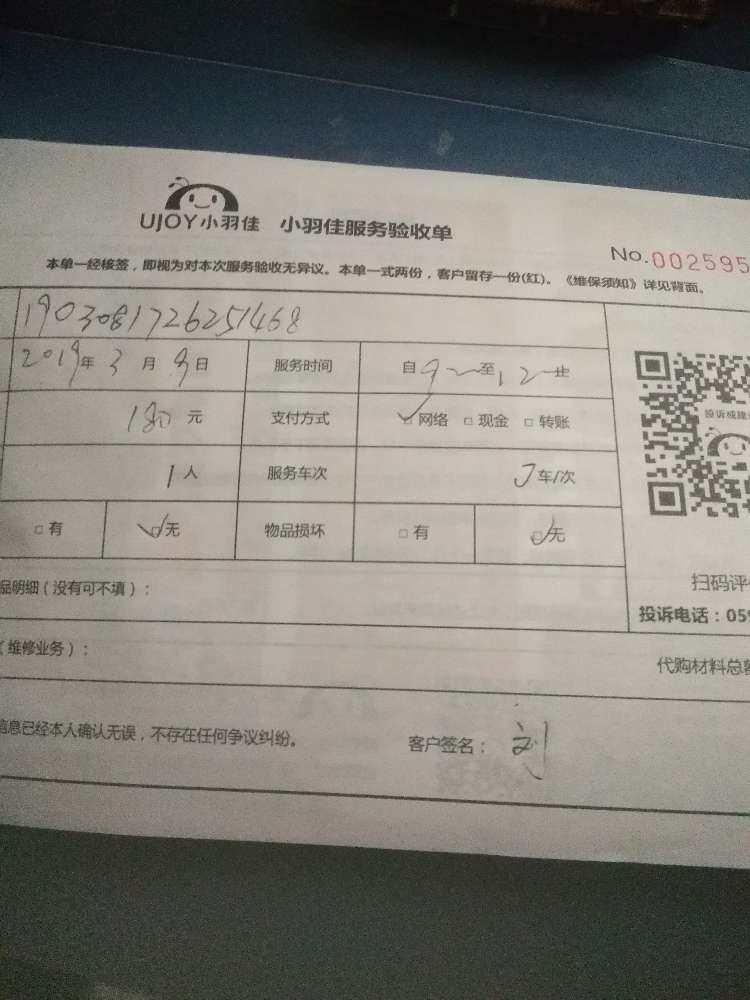 UJOY小羽佳 小羽佳服务验收单
No.002595
本单一经核签，即视为对本次服务验收无异议。本单一式两份，客户留存一份(红)。《维保须知》详见背面。
1903081726251468
2019年3月9日 服务时间 自9至12止
180元 支付方式 ☑网络 □现金 □转账
投诉或建
1人 服务车次 车/次
□有 ☑无 物品损坏 □有 ☑无
扫码评
品明细（没有可不填）：
投诉电话：059
（维修业务）：
代购材料总
信息已经本人确认无误，不存在任何争议纠纷。 客户签名：刘